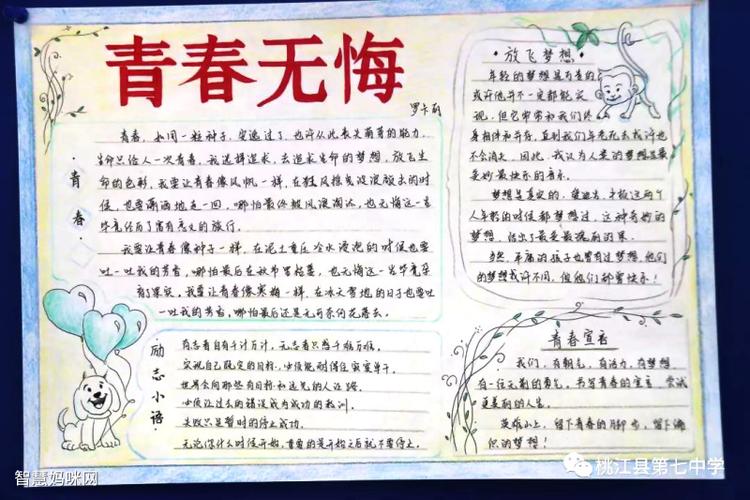 青春无悔
·青春·
青春，如同一粒种子，错过了，也许从此丧失萌芽的能力。
生命只给人一次青春，我选择追求，去追求生命的梦想，放飞生
命的色彩，我要让青春像风帆一样，在狂风
候，也要潇洒地走一回，哪怕最终被风浪淘汰，也无悔这一生
毕竟经历了富有意义的旅行。
我要让青春像种子一样，在泥土重压冷水浸泡的时候也要
吐一吐我的芳香，哪怕最后在秋节里枯萎，也无悔这一生毕竟朵
有了果实。我要让青春像寒梅一样，在冰天雪地的日子也要吐
一吐我的芳香，哪怕最后还是无可奈何花落去。
·励志小语·
有志者自有千计万计，无志者只感千难万难。
实现自己既定的目标，必须能耐得住寂寞单干。
世界会向那些有目标和远见的人让路。
必须让过去的错误成为成功的教训。
失败只是暂时的停止成功。
无论你什么时候开始，重要的是开始之后就不要停止。
·放飞梦想·
年轻的梦想是有声的
或许他并不一定都能实
现，但它牢牢和我们终
身相伴和并存，直到我们年老死去或许也
不会消失，因此，我认为人类的梦想是最
美妙最快乐的音乐。
梦想是真实的，
人年轻的时候都梦想过，这种奇妙的
梦想，结出了最美最瑰丽的果。
当然，平庸的孩子也曾有过梦想，他们
的梦想或许不同，但他们都曾快乐！
青春宣言
我们，有朝气，有活力，有梦想
有一往无前的勇气，书写青春的宣言，尝试
更美丽的人生。
英雄山上，留下青春的脚步，留下
织的梦想！
智慧妈咪网
桃江县第七中学